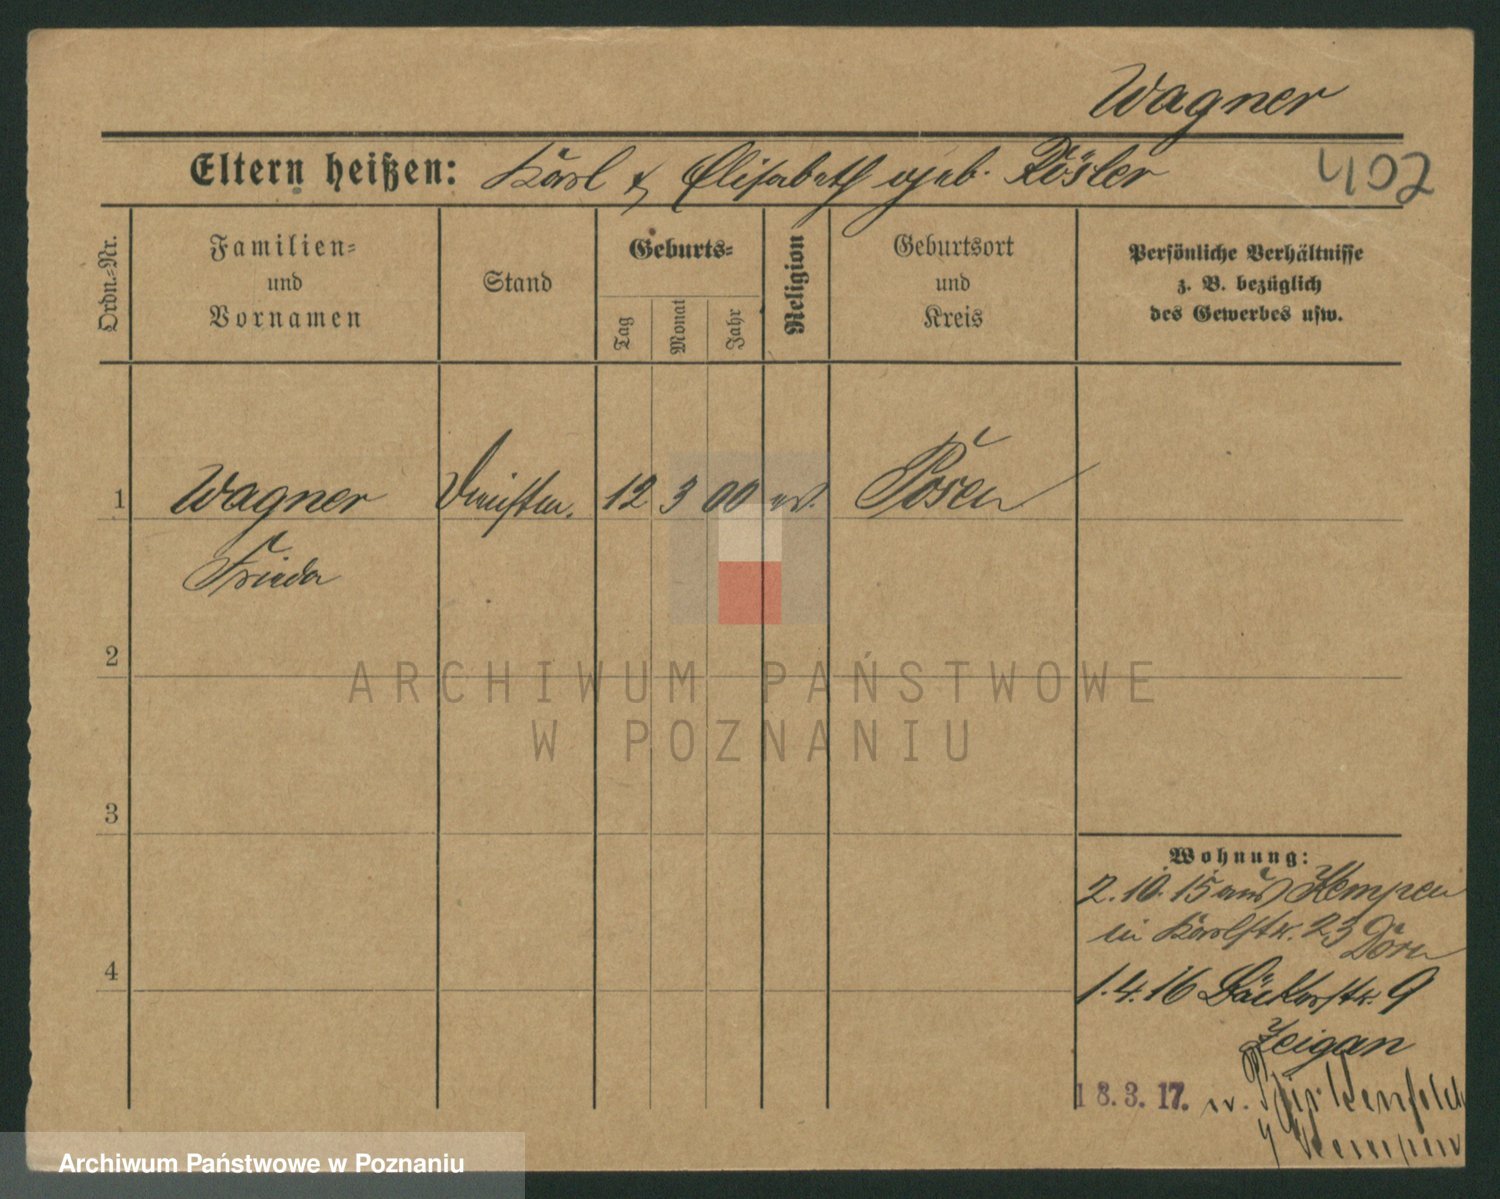 Wagner
Eltern heißen: Karl & Elisabeth geb. Rösler
402
Ordn.-Nr.
Familien-
und
Vornamen
Stand
Geburts-
Tag
Monat
Jahr
Religion
Geburtsort
und
Kreis
Persönliche Verhältnisse
z. B. bezüglich
des Gewerbes usw.
1 Wagner Dienstm. 12 3 00 ev. Posen
Frieda
2
3
4
Wohnung:
2.10.15 aus Kempen
in Karlstr. 23 Dorn
1.4.16 Bäckerstr. 9
Zeigan
18.3.17. n. Birkenfeld
Kempen
ARCHIWUM PAŃSTWOWE
W POZNANIU
Archiwum Państwowe w Poznaniu